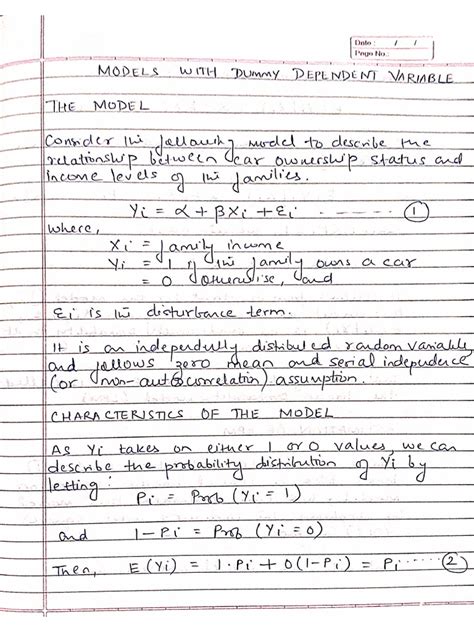 Date : / /
Page No.:
MODELS WITH DUMMY DEPENDENT VARIABLE
THE MODEL
Consider the following model to describe the
relationship between car ownership status and
income levels of the families.
Yi = α + βXi + εi - - - - - - ①
where,
Xi = family income
Yi = 1 if the family owns a car
= 0 otherwise, and
εi is the disturbance term.
It is an independently distributed random variable
and follows zero mean and serial independence
(or non-autocorrelation) assumption.
CHARACTERISTICS OF THE MODEL
As Yi takes on either 1 or 0 values, we can
describe the probability distribution of Yi by
letting :
Pi = Prob (Yi = 1)
and 1-Pi = Prob (Yi = 0)
Then, E(Yi) = 1·Pi + 0(1-Pi) = Pi - - - - ②